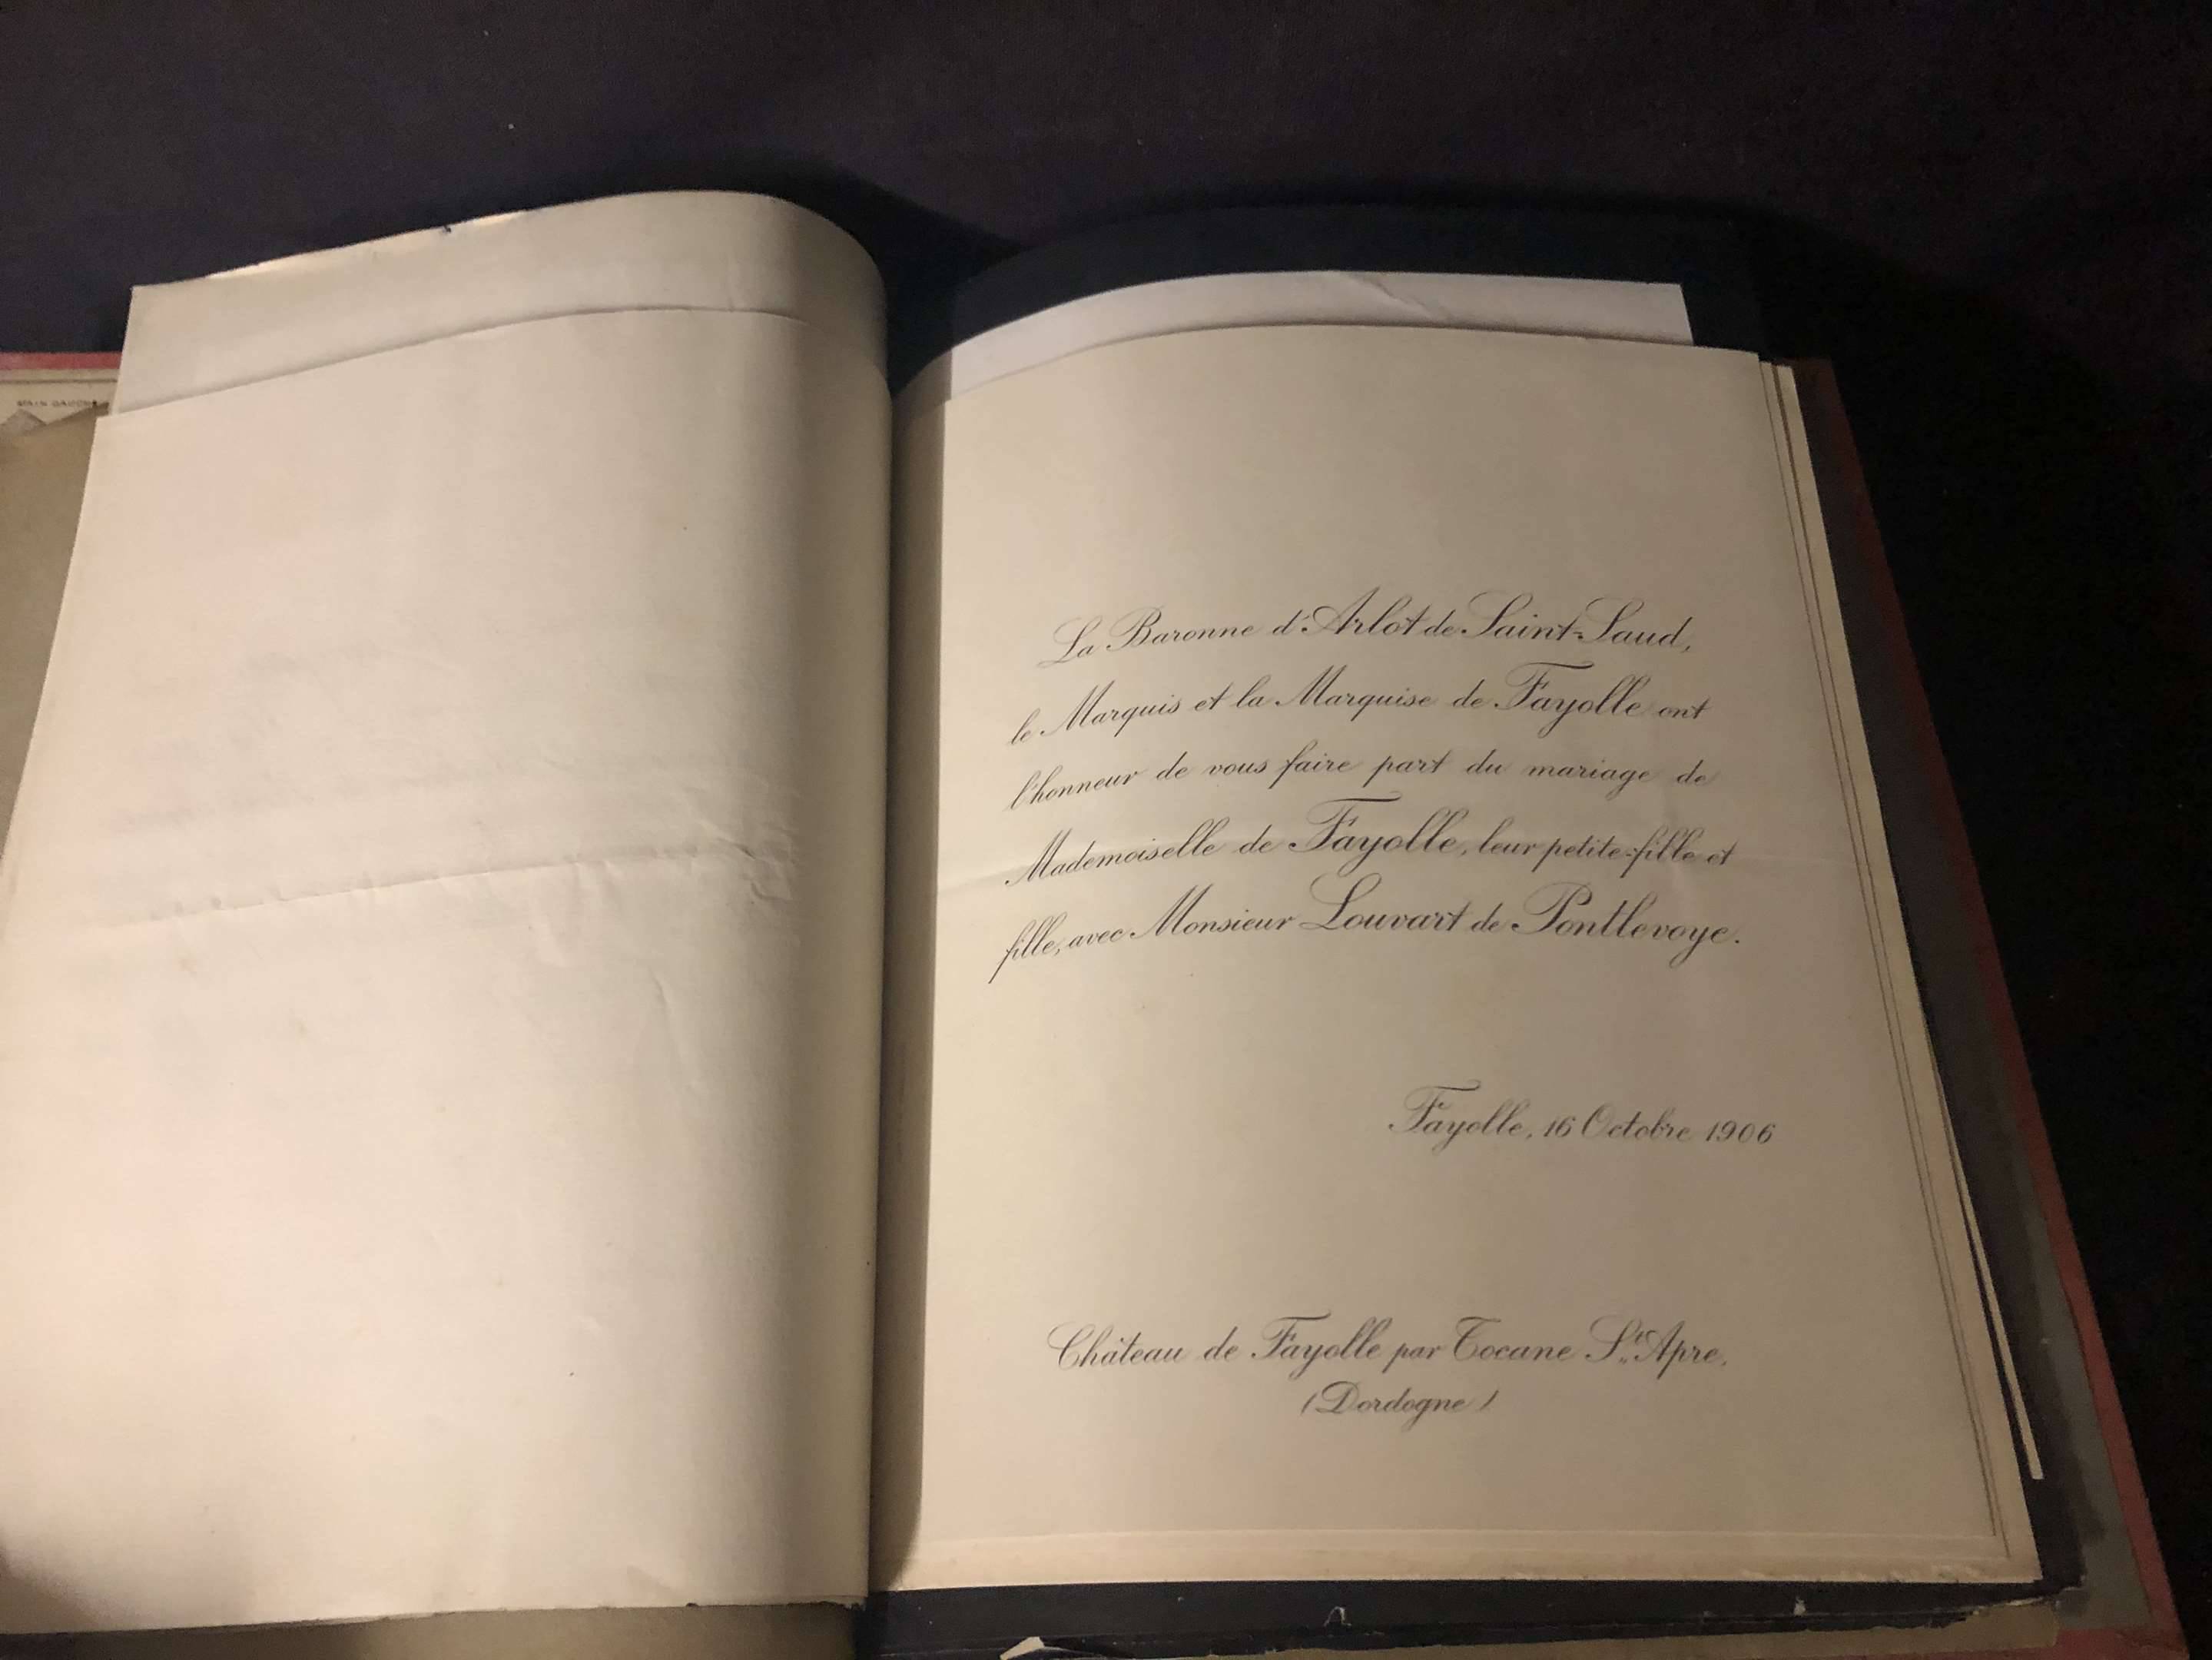 La Baronne d'Arlot de Saint-Saud,
le Marquis et la Marquise de Fayolle ont
l'honneur de vous faire part du mariage de
Mademoiselle de Fayolle, leur petite-fille et
fille, avec Monsieur Louvart de Pontlevoye.
Fayolle, 16 Octobre 1906
Château de Fayolle par Tocane St Apre,
(Dordogne)